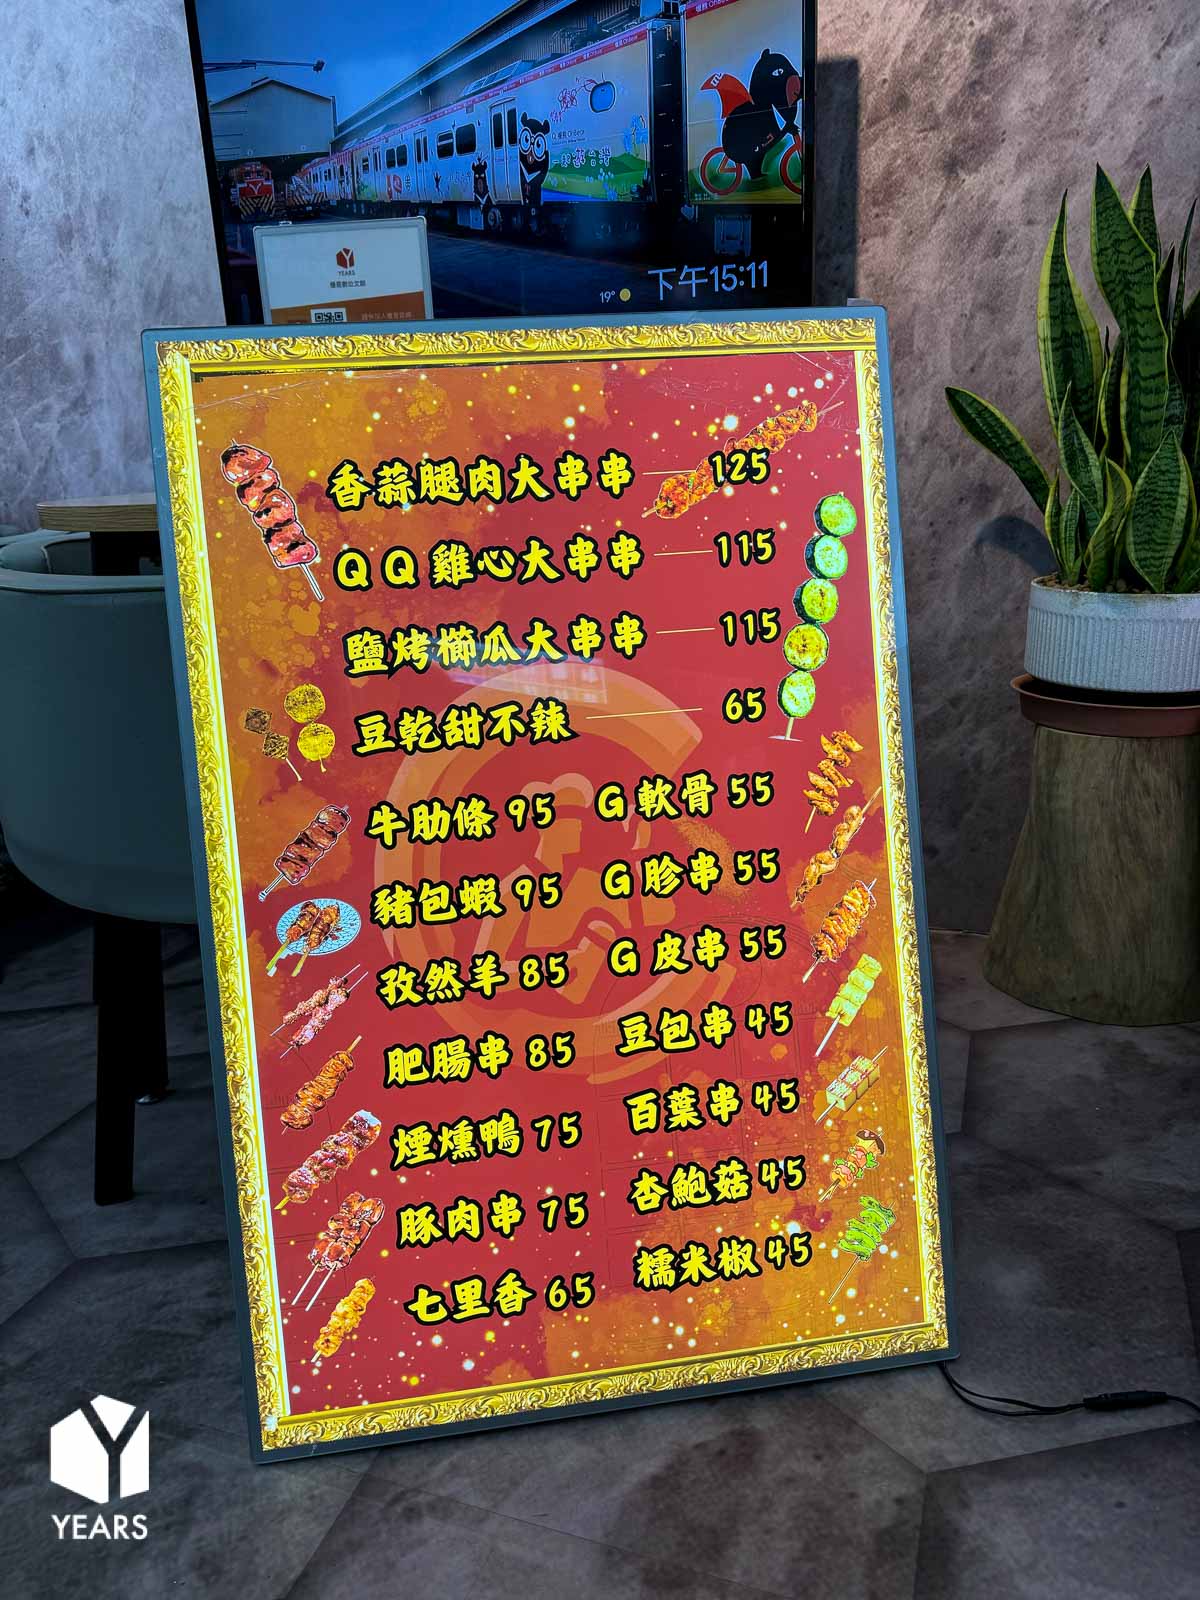 一起遊台灣
下午15:11
19°
YEARS
香蒜腿肉大串串 125
QQ雞心大串串 115
鹽烤櫛瓜大串串 115
豆乾甜不辣 65
牛肋條 95 G軟骨 55
豬包蝦 95 G胗串 55
孜然羊 85 G皮串 55
肥腸串 85 豆包串 45
煙燻鴨 75 百葉串 45
豚肉串 75 杏鮑菇 45
七里香 65 糯米椒 45
YEARS